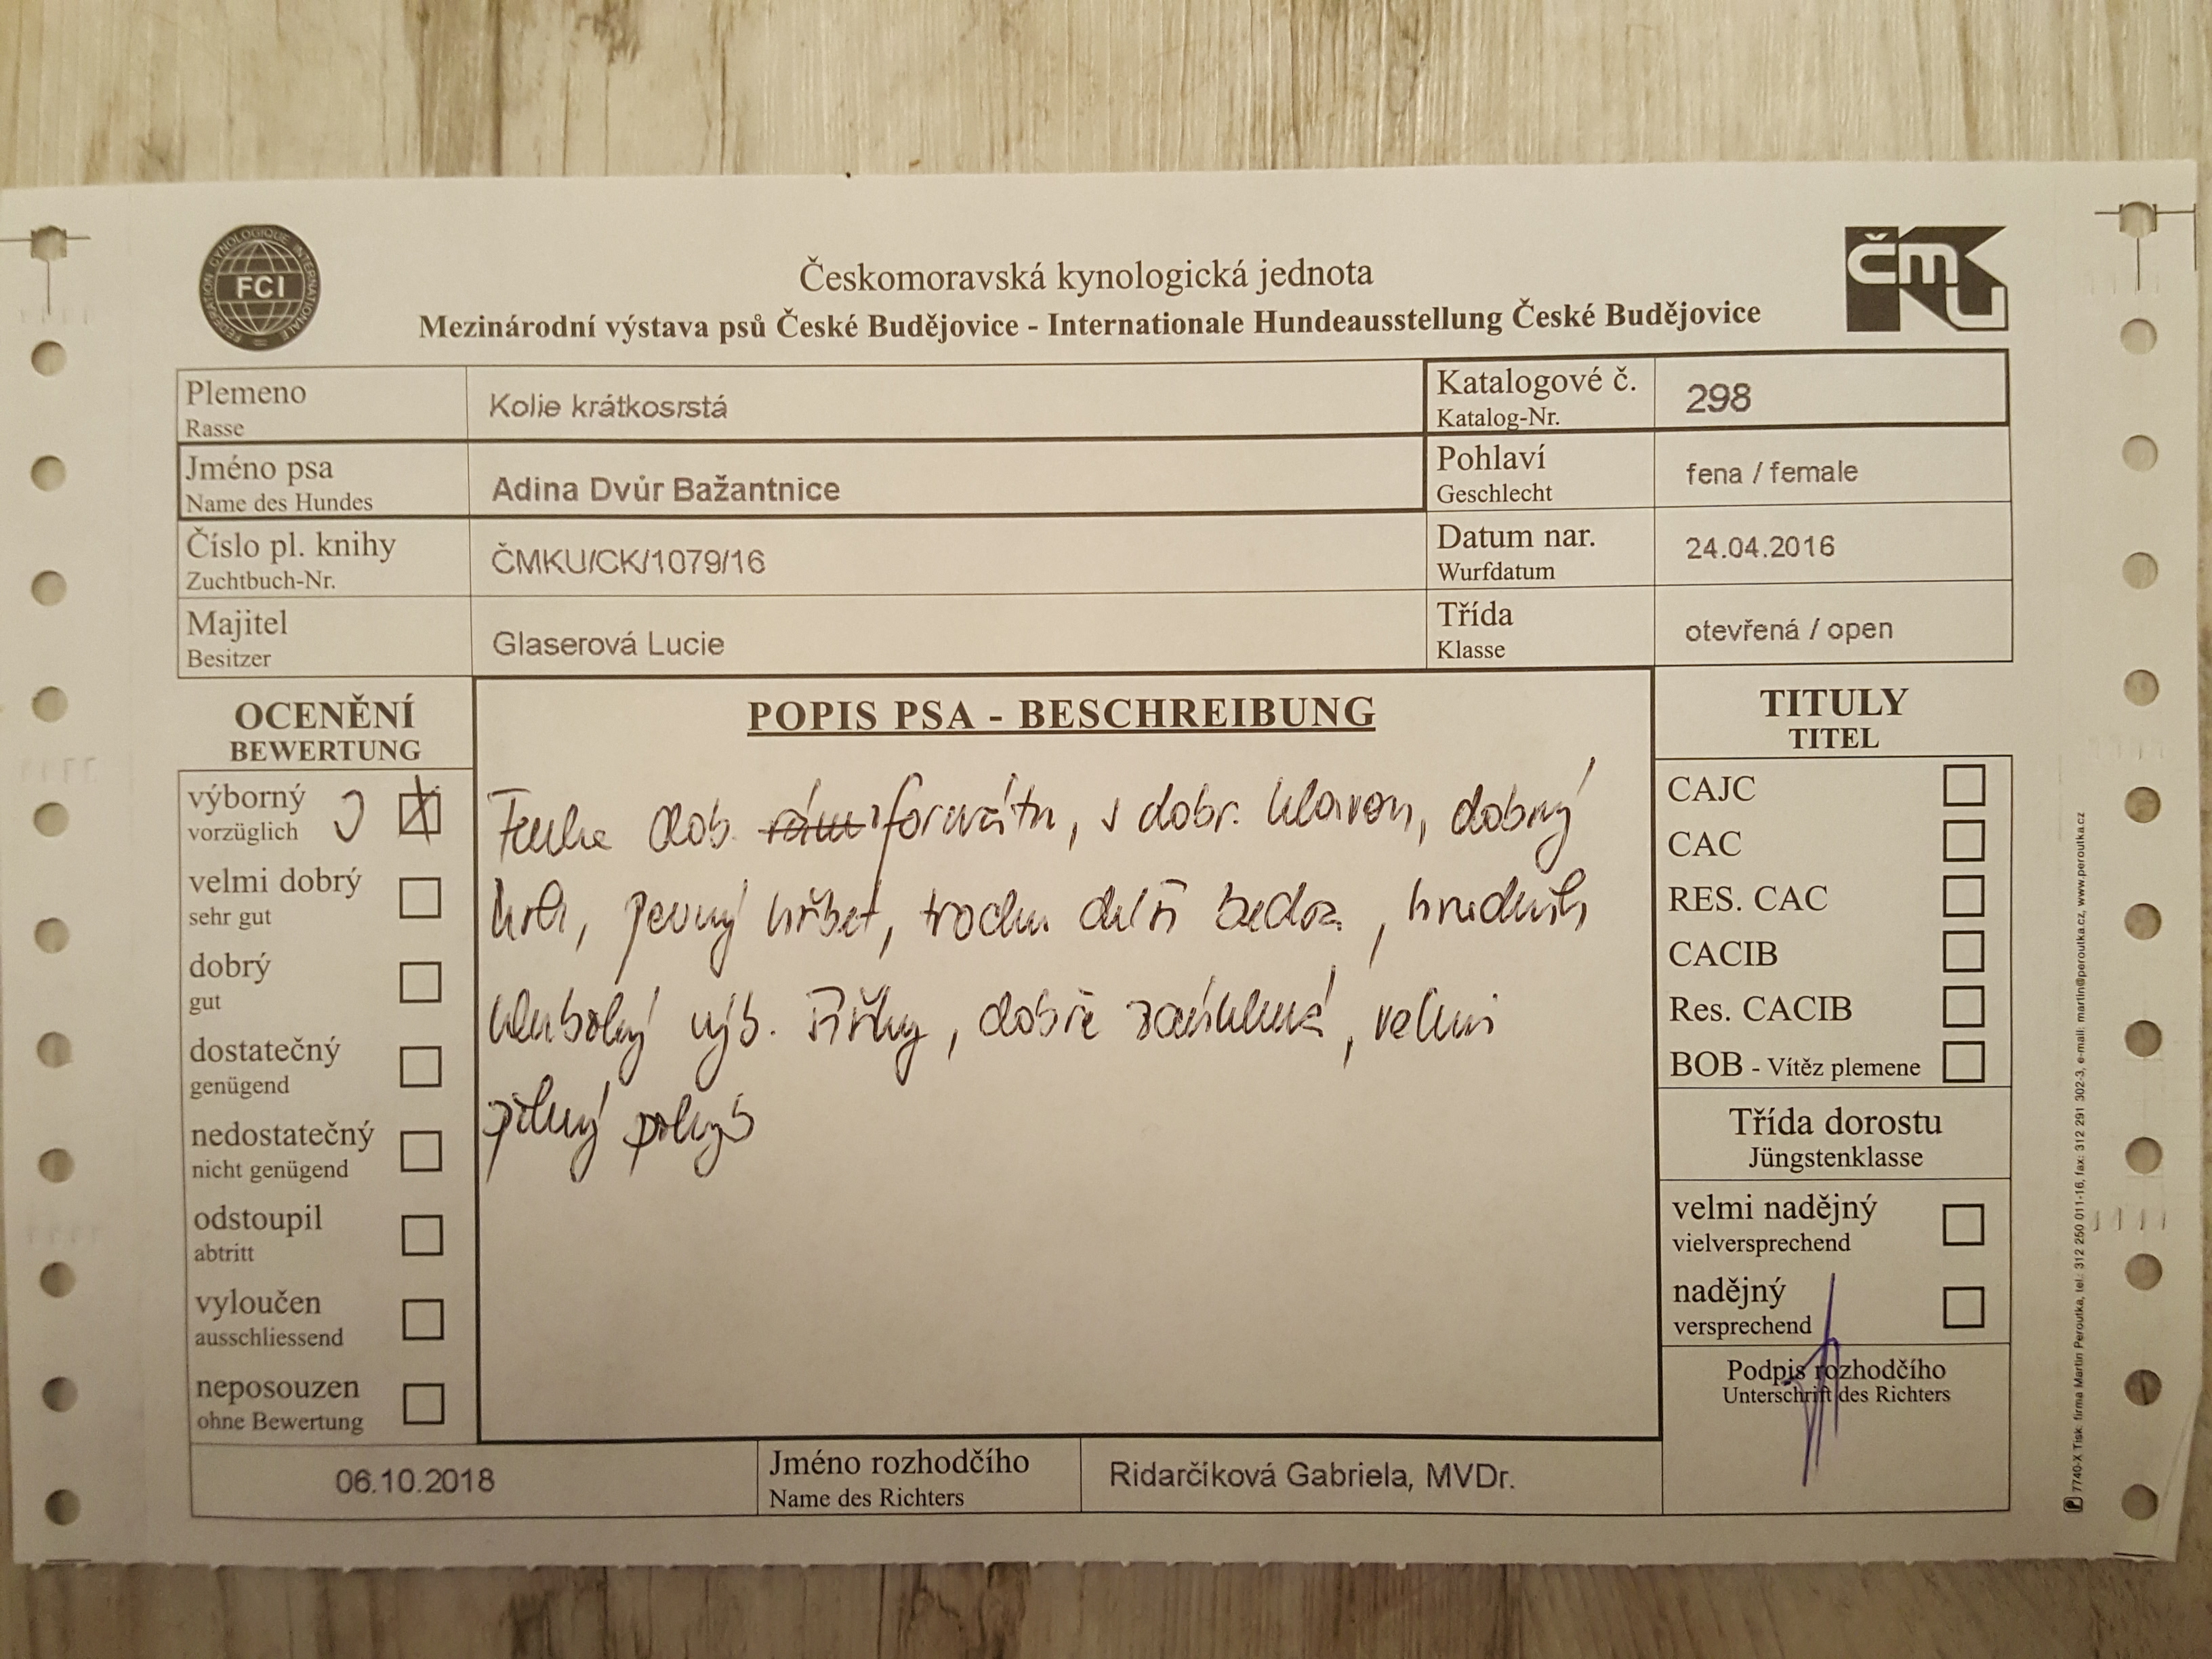 FEDERATION CYNOLOGIQUE INTERNATIONALE
FCI
Českomoravská kynologická jednota
Mezinárodní výstava psů České Budějovice - Internationale Hundeausstellung České Budějovice
ČMKU
Plemeno
Rasse
Kolie krátkosrstá
Katalogové č.
Katalog-Nr.
298
Jméno psa
Name des Hundes
Adina Dvůr Bažantnice
Pohlaví
Geschlecht
fena / female
Číslo pl. knihy
Zuchtbuch-Nr.
ČMKU/CK/1079/16
Datum nar.
Wurfdatum
24.04.2016
Majitel
Besitzer
Glaserová Lucie
Třída
Klasse
otevřená / open
OCENĚNÍ
BEWERTUNG
výborný
vorzüglich
velmi dobrý
sehr gut
dobrý
gut
dostatečný
genügend
nedostatečný
nicht genügend
odstoupil
abtritt
vyloučen
ausschliessend
neposouzen
ohne Bewertung
POPIS PSA - BESCHREIBUNG
dob. formátu, s dobr. hlavou, dobrý
krk, pevný hřbet, trochu delší bedra, hrudník
hluboký výb. šířky, dobře zaúhlená, velmi
pěkný pohyb
TITULY
TITEL
CAJC
CAC
RES. CAC
CACIB
Res. CACIB
BOB - Vítěz plemene
Třída dorostu
Jüngstenklasse
velmi nadějný
vielversprechend
nadějný
versprechend
Podpis rozhodčího
Unterschrift des Richters
06.10.2018
Jméno rozhodčího
Name des Richters
Ridarčíková Gabriela, MVDr.
7740-X Tisk: firma Martin Peroutka, tel.: 312 250 011-16, fax: 312 291 302-3, e-mail: martin@peroutka.cz, www.peroutka.cz